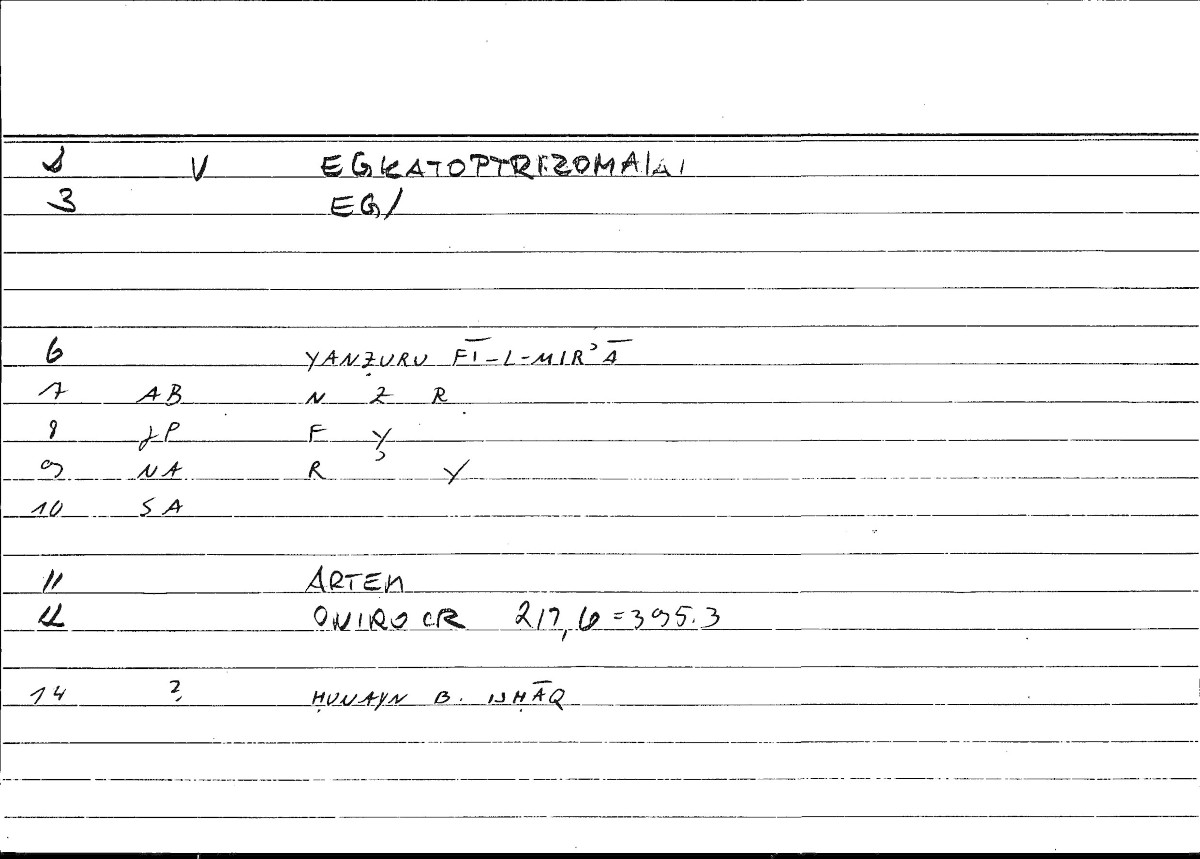 1 V EGKATOPTRIZOMAI
3 EG/
6 YANẒURU FĪ-L-MIRʾĀ
7 AB N Ẓ R
8 JP F Y
9 NA R ʾ Y
10 SA
11 ARTEM
12 ONIROCR 217,6=395.3
14 2, ḤUNAYN B. ISḤĀQ